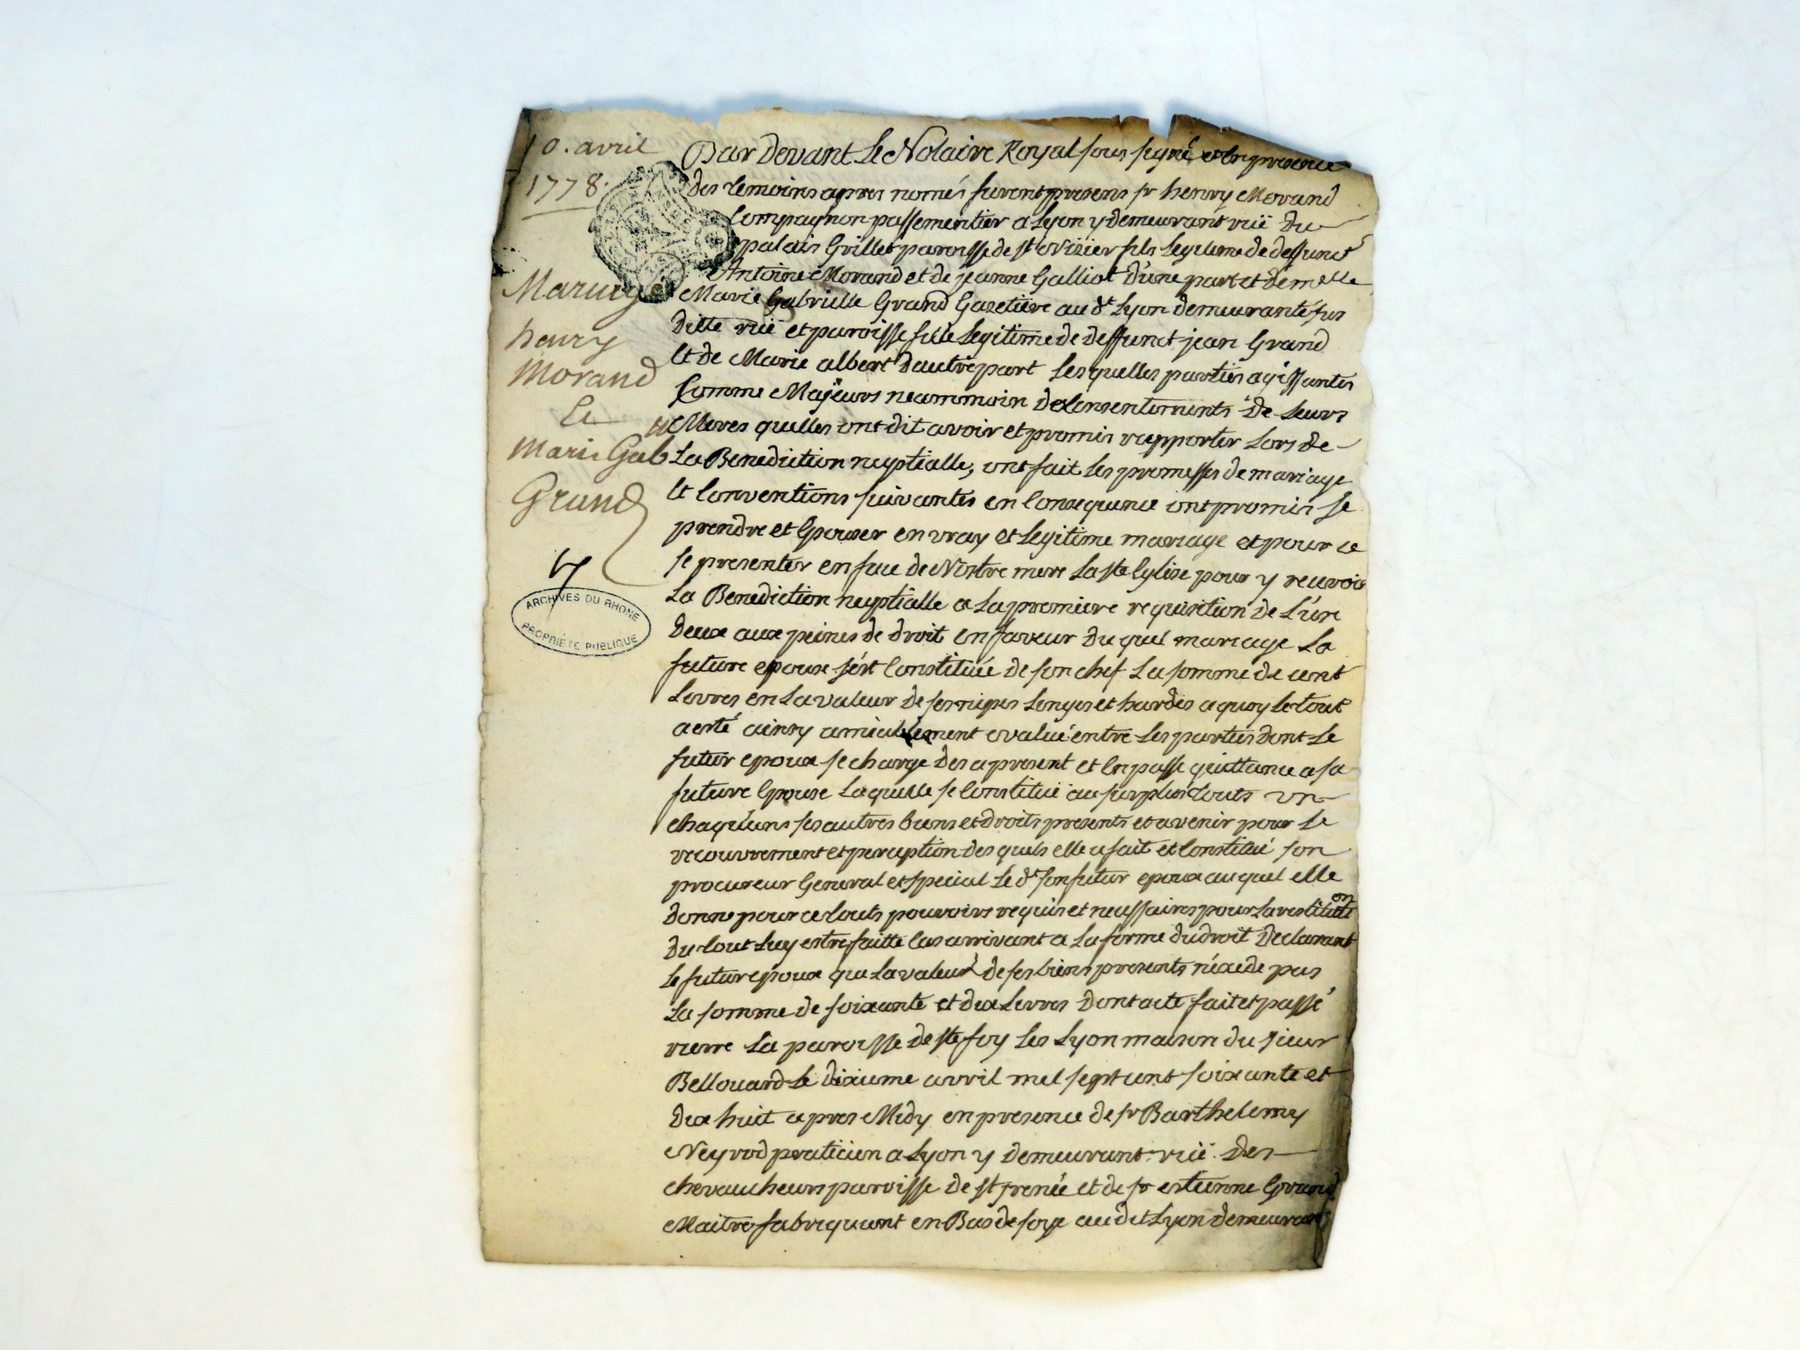 10. avril
1778.
Mariage
henry
Morand
Et
Marie Gab
Grand
ARCHIVES DU RHONE
PROPRIÉTÉ PUBLIQUE
Par Devant Le Notaire Royal sous signé et En presence
des temoins apres només furent presens sr henry Morand
Compagnon passementier a Lyon y demeurant ruë du
palais Grillet paroisse de st Nizier fils Legitime de deffunct
Antoine Morand et de jeanne Galliot d'une part et demelle
Marie Gabrielle Grand Gazetiere au dt Lyon demeurante sus
ditte ruë et paroisse fille Legitime de deffunct jean Grand
Et de Marie albert d'autre part Lesquelles parties agissantes
Comme Majeurs neammoin de Consentements de Leurs
Meres quelles ont dit avoir et promis rapporter Lors de
La Benediction nuptialle, ont fait Les promesses de mariage
Et Conventions suivantes en Consequence ont promis se
prendre et Epouser en vray et Legitime mariage et pour ce
se presenter en face de Nostre mere La ste Eglise pour y recevoir
La Benediction nuptialle a La premiere requisition de L'un
deux aux peines de droit En faveur du quel mariage La
future epouse s'est Constituée de son chef La somme de cent
Livres en La valeur de ses nipes Linges et hardes a quoy Le tout
a esté ainsy amiablement evalué entre Les parties dont Le
futur epoux se charge des a present et En passe quittance a sa
future Epouse Laquelle se Constitue au surplus touts un
chaqu'uns ses autres biens et droits presents et avenir pour Le
recouvrement et perception des quels elle a fait et Constitué son
procureur General et special Le dt son futur epoux au quel elle
donne pour ce touts pouvoirs requis et necessaires pour La restitution
du tout Luy estre faitte Cas arrivant a La forme du droit Declarant
Le futur epoux que La valeur de ses biens presents n'exede pas
La somme de soixante et dix Livres Dont acte fait et passé
La paroisse de ste foy Les Lyon maison du sieur
Bellouard Le dixieme avril mil sept cent soixante et
dix huit apres Midy en presence de sr Barthelemy
Neyrod praticien a Lyon y demeurant ruë des
chevaucheurs paroisse de st irenée et de sr estienne Grand
Maitre fabriquant en Bas de soye au dit Lyon demeurant